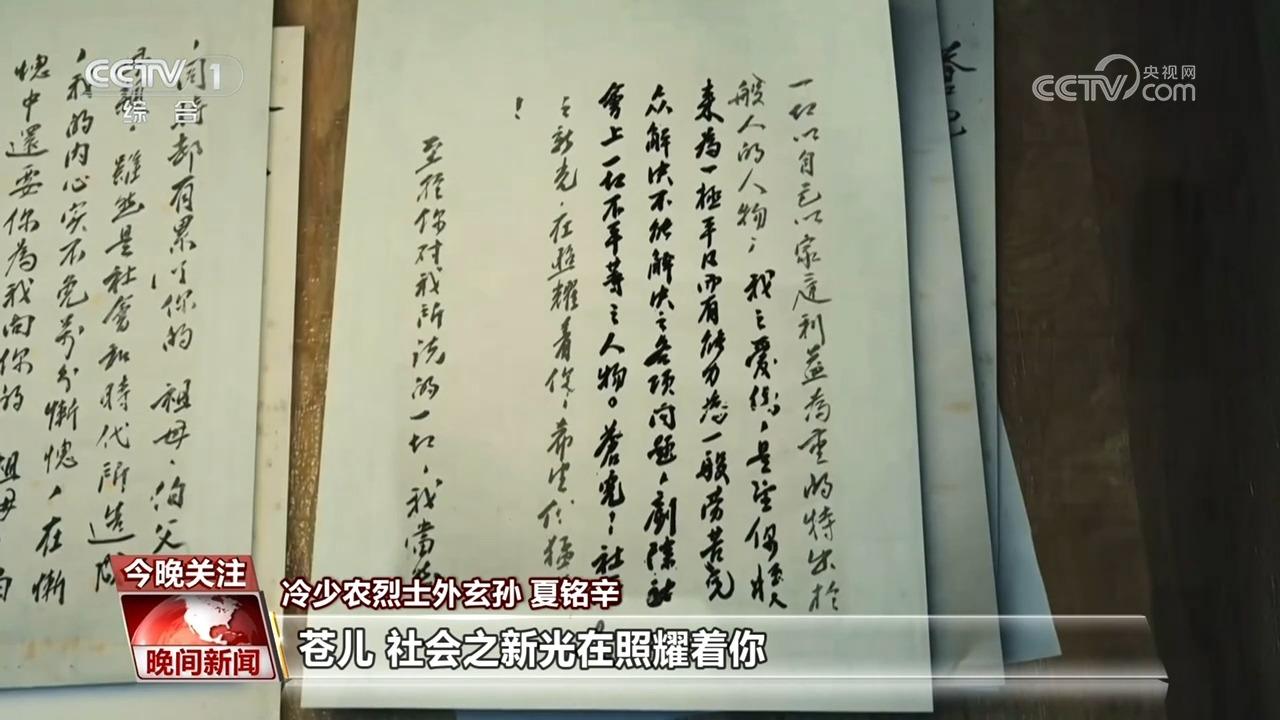 CCTV 1
综合
央视网
CCTV com
蒼兒
一切以自己以家庭利益為重的特出於
般人的人物；我之愛你，是望你將
来為一極平凡而有能力為一般劳苦民
众解决不能解决之各項问题，剷除社
會上一切不平等之人物。蒼兒！社
之新光，在照耀着你，希望你猛
！
至於你对我所说的一切，我當
却有累了你的 祖母、伯父
雖然是社會和時代所造成
的内心实不免萬分慚愧，在慚
愧中還要你為我向你的 祖母
今晚关注
晚间新闻
冷少农烈士外玄孙 夏铭辛
苍儿 社会之新光在照耀着你